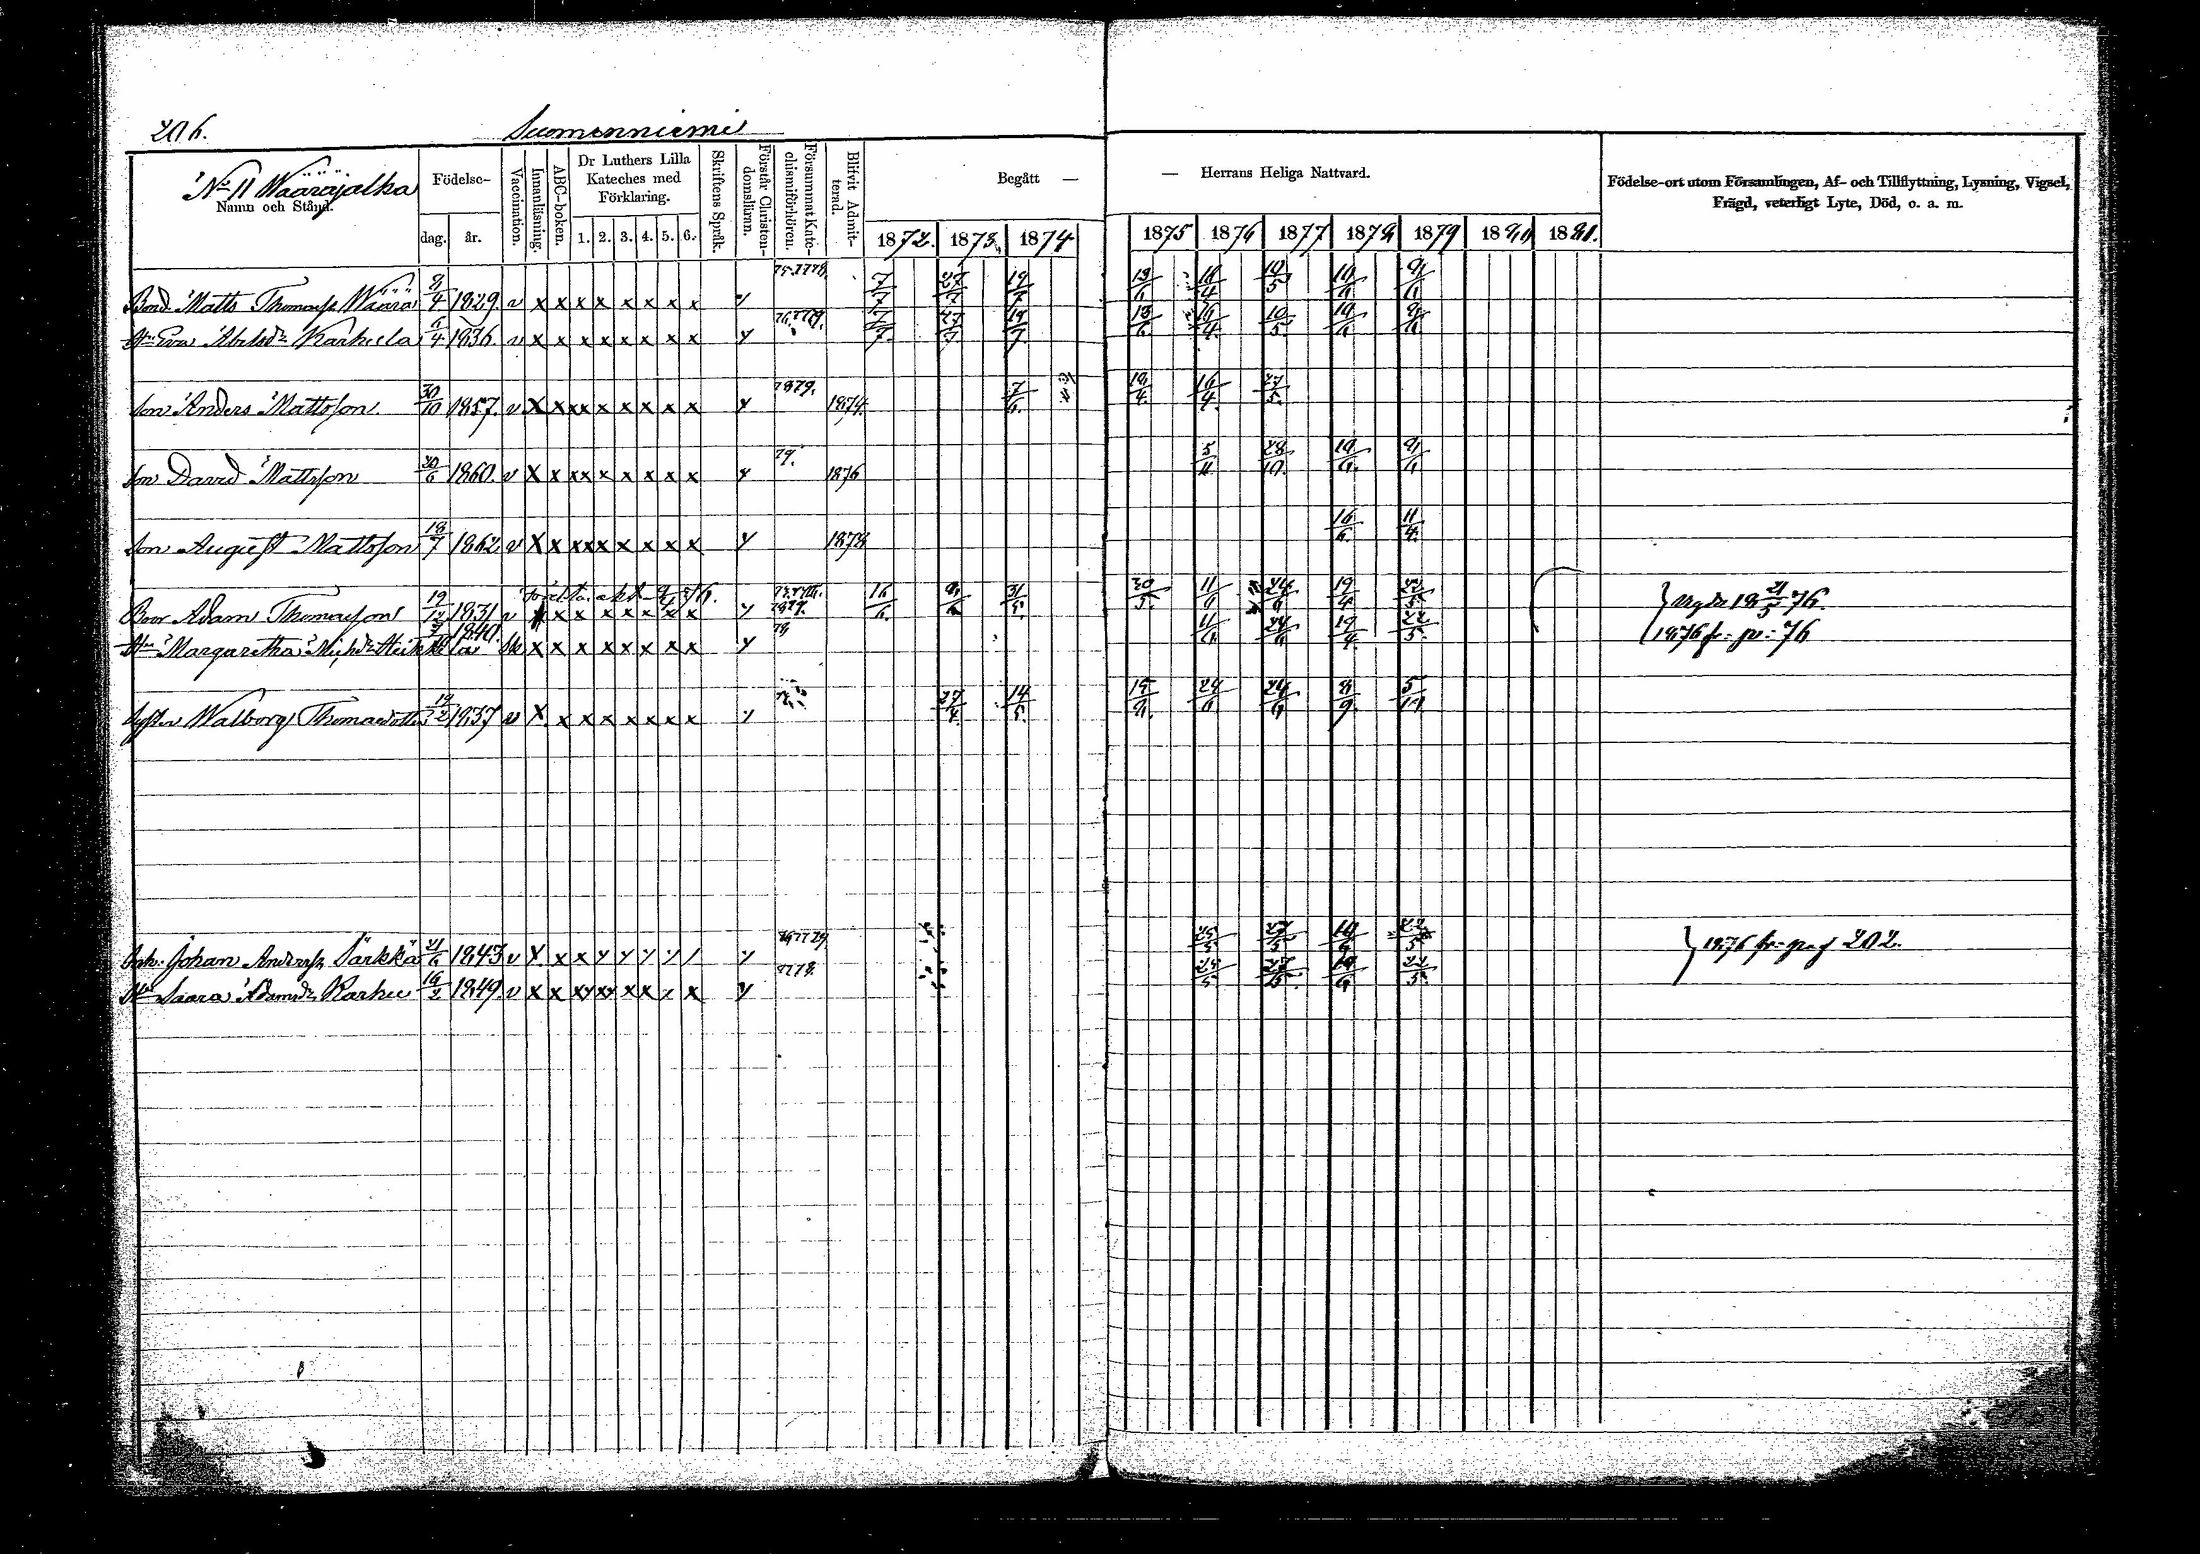 206.
Suomenniemi
No 11 Wääräjalka
Namn och Stånd.
Födelse-
dag.
år.
Vaccination.
Innanläsning.
ABC-boken.
Dr Luthers Lilla Kateches med Förklaring.
1. 2. 3. 4. 5. 6.
Skriftens Språk.
Förstår Christendomsläran.
Försummat Katechismiförhören.
Blifvit Admitterad.
Begått —
1872. 1873. 1874
— Herrans Heliga Nattvard.
1875 1876 1877 1878 1879 1880 1881.
Födelse-ort utom Församlingen, Af- och Tillflyttning, Lysning, Vigsel,
Frägd, veterligt Lyte, Död, o. a. m.
Bond. Matts Thomass. Wäärä 8/4 1829. v x x x x x x x x y 7/7 27/7 19/7 13/6 16/4 10/5 10/6 9/6
Hu Eva Abelsdr Karhula 6/4 1836. v x x x x x x x x y 7/7 27/7 19/7 13/6 16/4 10/5 10/6 9/6
Son Anders Mattsson 30/10 1857. v x x xx x x x x x y 7879. 1874. 7/6 18/4 16/4 27/5
Son David Mattsson 30/6 1860. v x x xx x x x x x y 79. 1876 5/11 28/10 10/6 9/6
Son August Mattsson 18/7 1862 v x x xx x x x x x y 1878 16/6 11/4
Bror Adam Thomasson 19/12 1831 v x x x x x x x x y 16/6 31/5 30/5 11/6 24/6 19/4 22/5 Vigde 18 21/5 76.
Hu Margaretha Michdr 1840. sk x x x x x x x x y 78 11/6 24/6 19/4 22/5 1876 fr: p: 76
Syster Walborg Thomasdotter 19/2 1837 v x x x x x x x x y 27/4 14/5 15/8 24/6 24/6 8/9 5/10
Inh. Johan Anderss. Särkkä 21/6 1843 v x x x y y y y y 25/5 27/5 10/6 22/5 1876 fr: pag 202.
Hu Saara Adamsdr Karhu 16/2 1849. v x x xy xy x x x x y 7778. 25/5 27/5 10/6 22/5